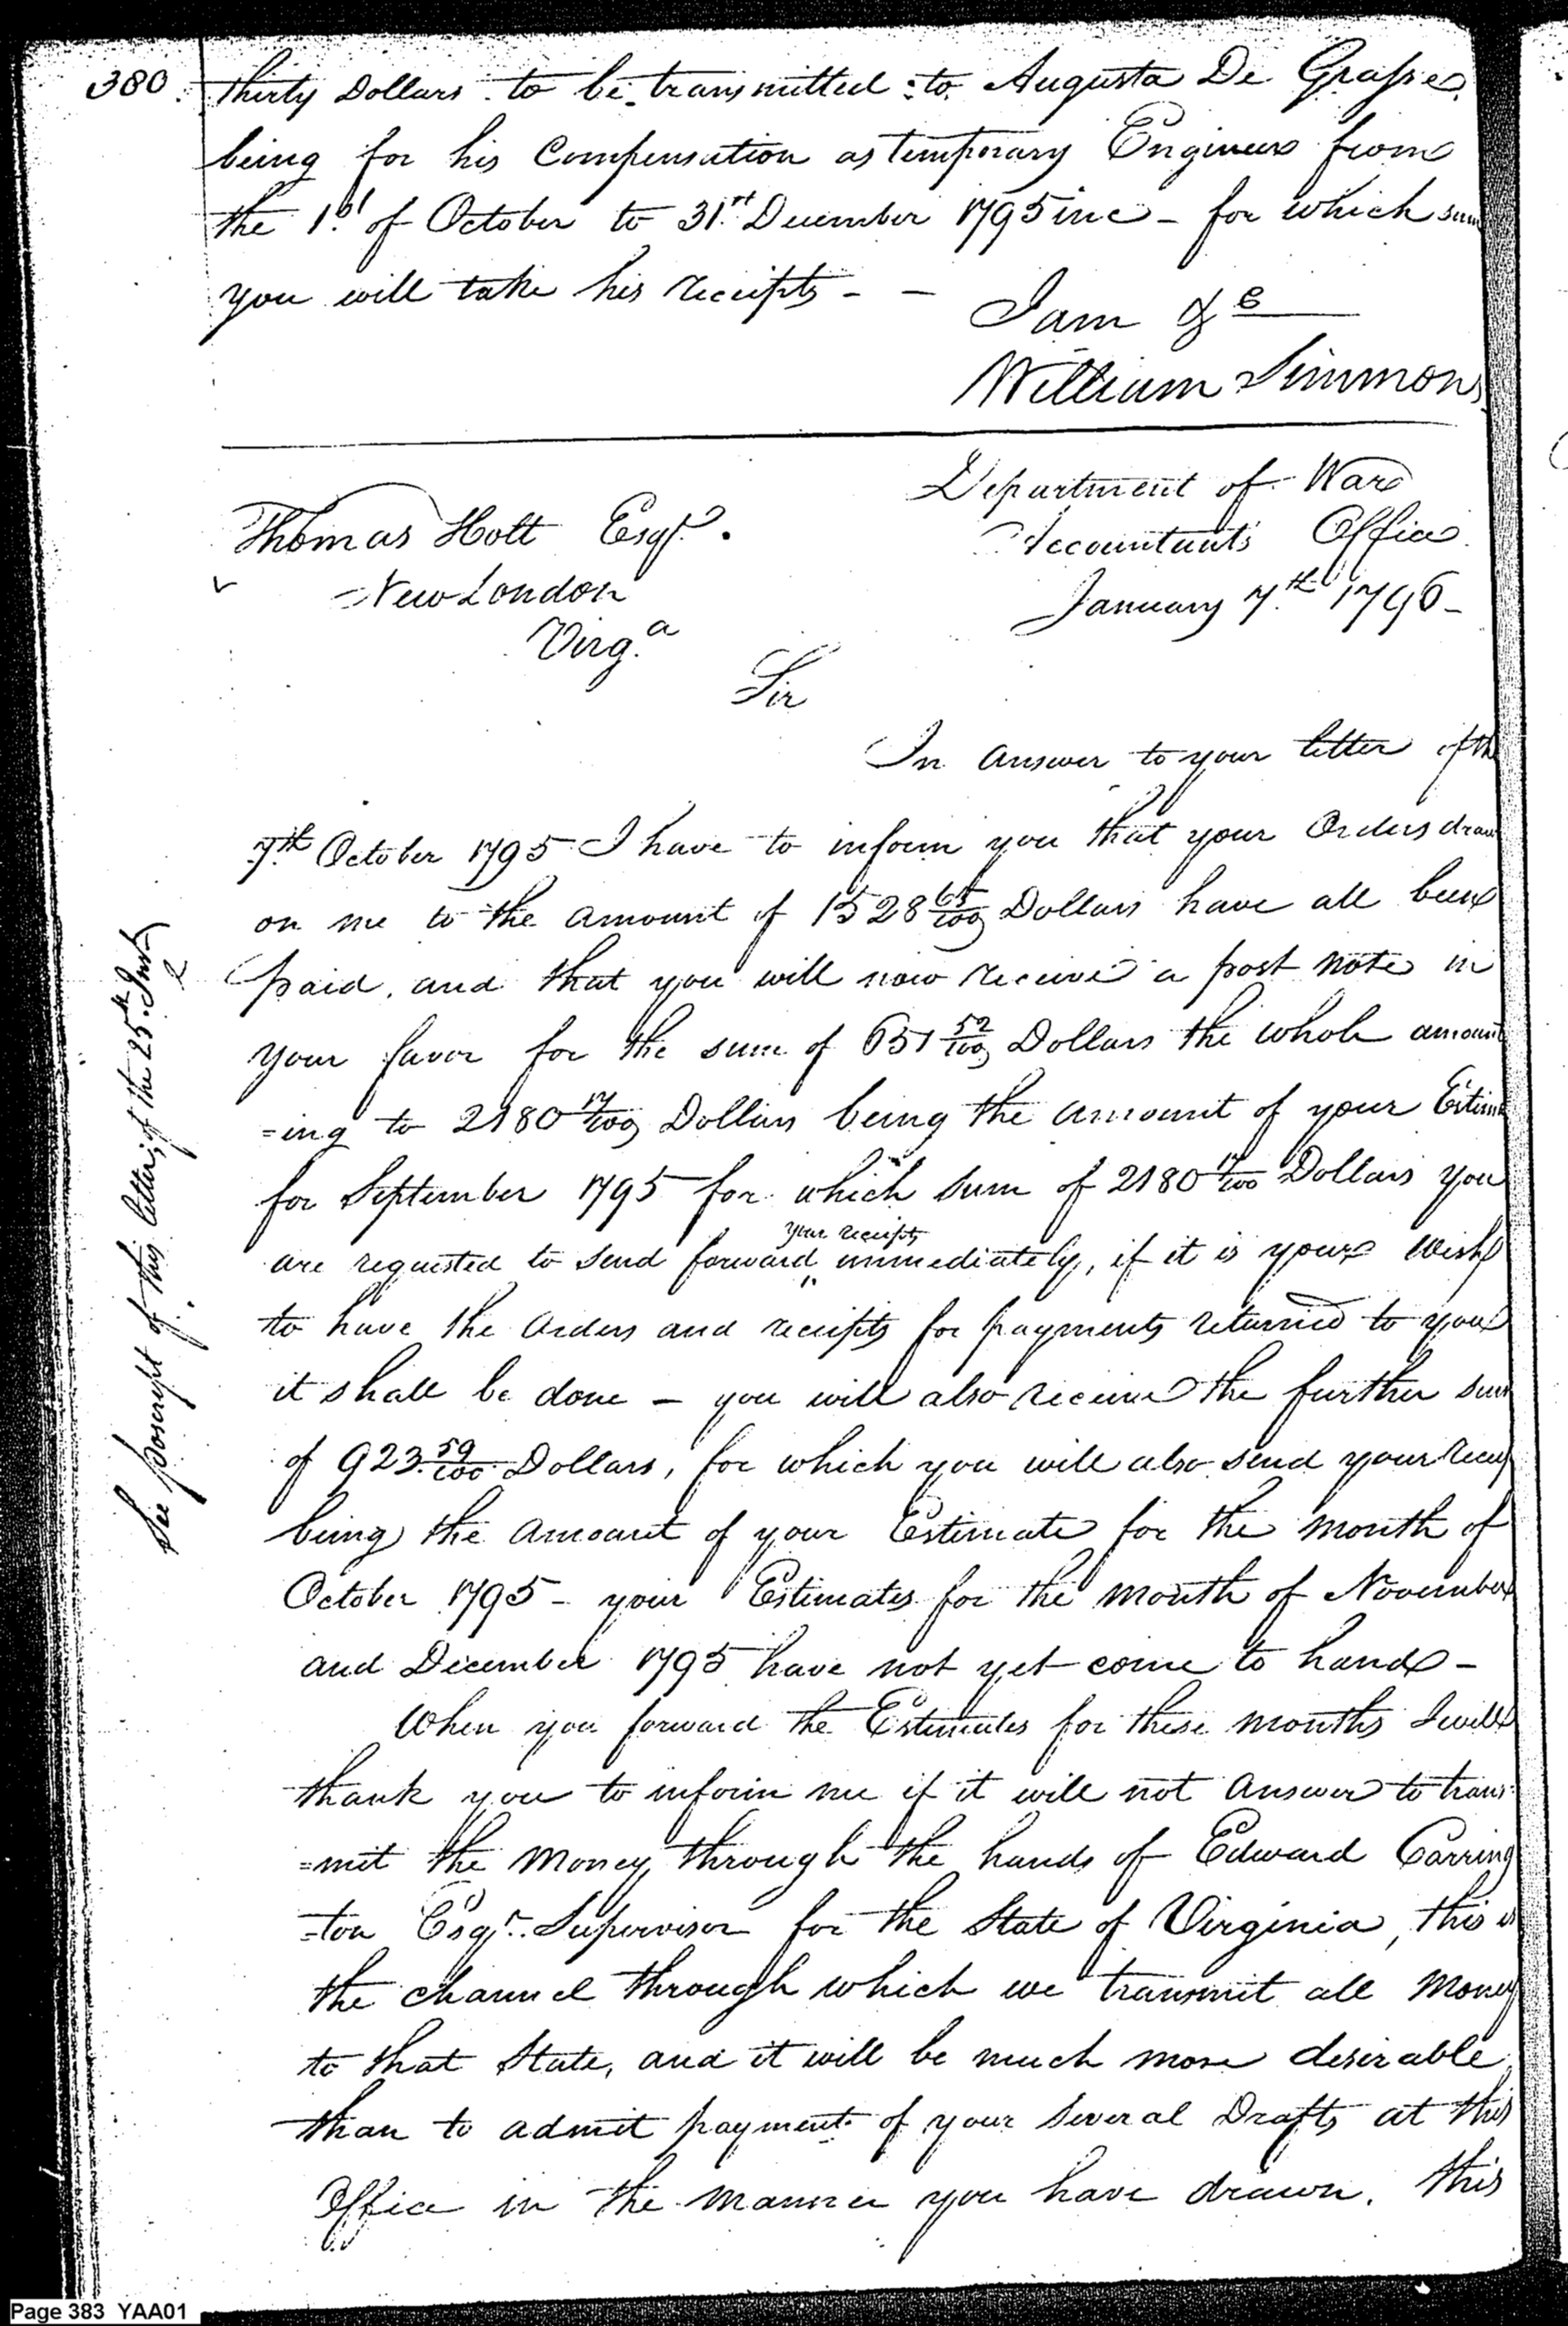 380
thirty Dollars to be transmitted to Augusta De Grasse
being for his Compensation as temporary Engineer from
the 1st of October to 31st December 1795 inc - for which sum
you will take his receipts - -
I am &c
William Simmons
Department of War
Accountants Office
January 7th 1796 -
Thomas Holt Esqr.
New London
Virga
Sir
In answer to your letter of the
7th October 1795 I have to inform you that your Orders drawn
on me to the amount of 1528 65/100 Dollars have all been
paid, and that you will now receive a post note in
your favor for the sum of 651 52/100 Dollars the whole amount
=ing to 2180 17/100 Dollars being the amount of your Estim
for September 1795 for which sum of 2180 17/100 Dollars you
are requested to send forward your receipts immediately, if it is your wish
to have the orders and receipts for payments returned to you
it shall be done - you will also receive the further sum
of 923 59/100 Dollars, for which you will also send your
being the amount of your Estimate for the month of
October 1795 - your Estimates for the month of November
and December 1795 have not yet come to hand -
When you forward the Estimates for these months I will
thank you to inform me if it will not answer to trans
=mit the money through the hands of Edward Carring
=ton Esqr. Supervisor for the State of Virginia, this is
the channel through which we transmit all money
to that State, and it will be much more desirable
than to admit payment of your several Drafts at this
Office in the manner you have drawn. this
See poscript of this letter, of the 25th Inst
Page 383 YAA01